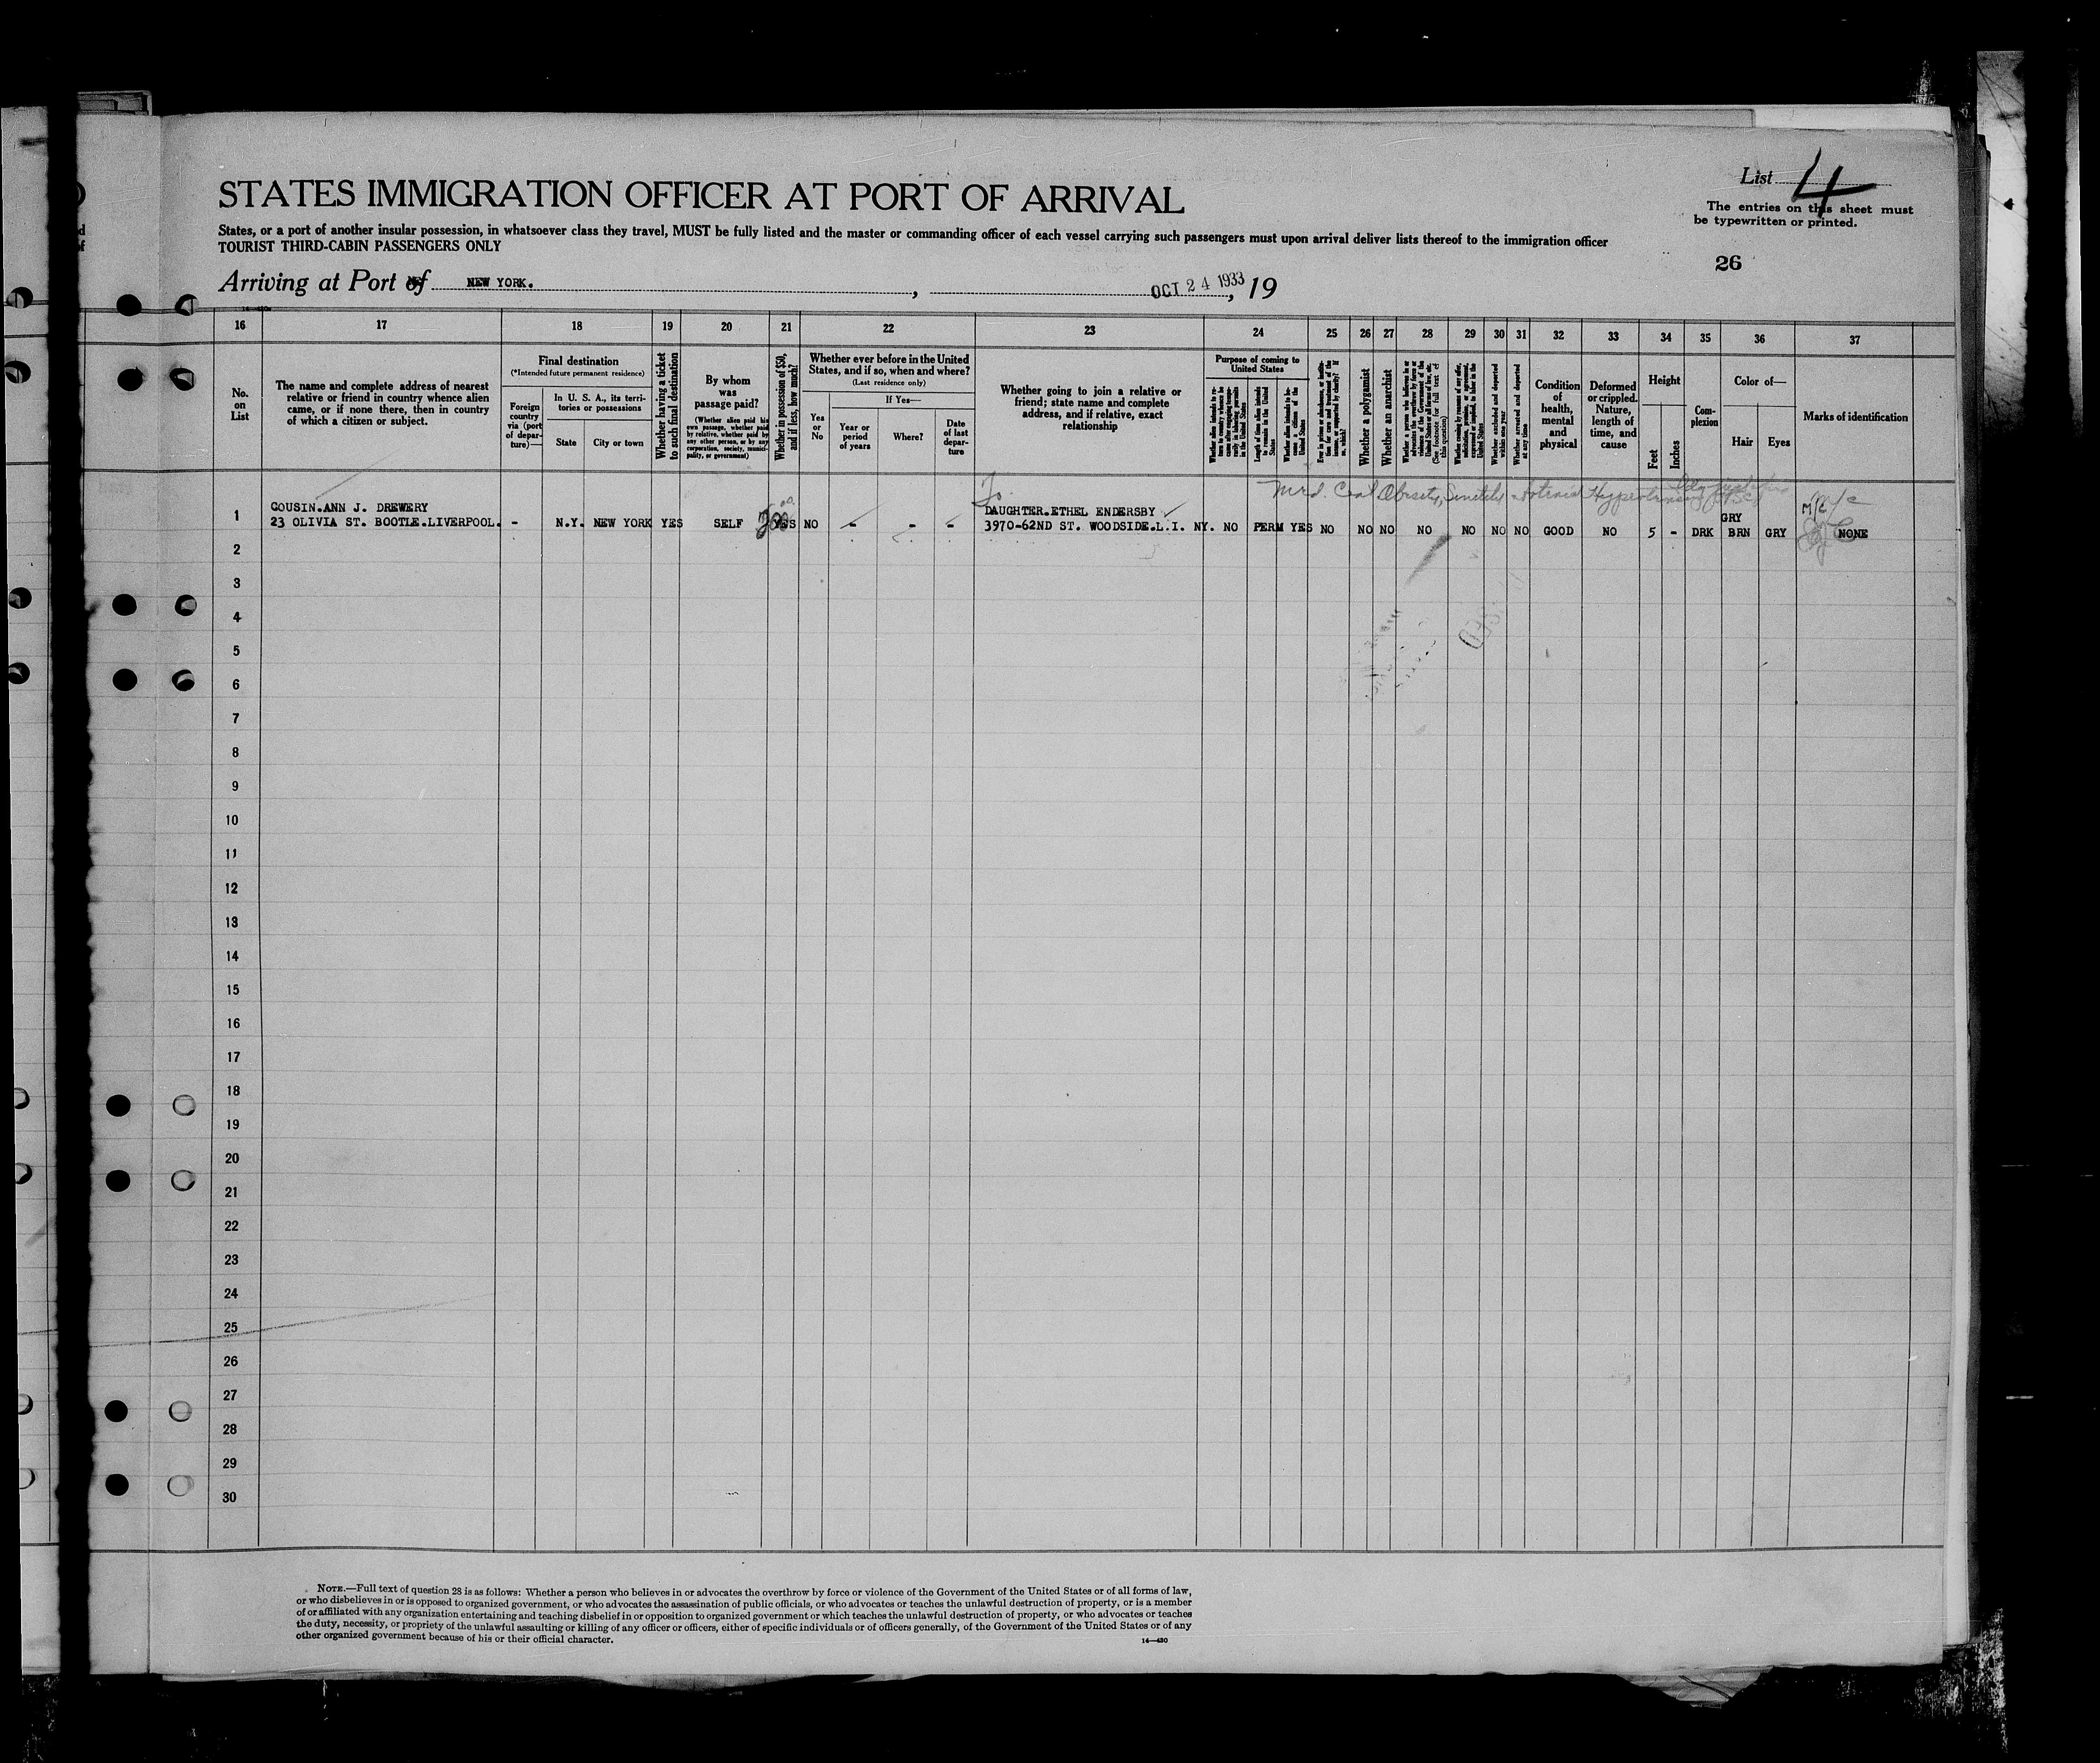 List 4
The entries on this sheet must
be typewritten or printed.
STATES IMMIGRATION OFFICER AT PORT OF ARRIVAL
States, or a port of another insular possession, in whatsoever class they travel, MUST be fully listed and the master or commanding officer of each vessel carrying such passengers must upon arrival deliver lists thereof to the immigration officer
TOURIST THIRD-CABIN PASSENGERS ONLY
26
Arriving at Port of NEW YORK. , OCT 24 1933, 19
16 17 18 19 20 21 22 23 24 25 26 27 28 29 30 31 32 33 34 35 36 37
No.
on
List
The name and complete address of nearest
relative or friend in country whence alien
came, or if none there, then in country
of which a citizen or subject.
Final destination
(*Intended future permanent residence)
Foreign
country
via (port
of depar-
ture)—
In U. S. A., its terri-
tories or possessions
State
City or town
Whether having a ticket
to such final destination
By whom
was
passage paid?
(Whether alien paid his
own passage, whether paid
by relative, whether paid by
any other person, or by any
corporation, society, munici-
pality, or government)
Whether in possession of $50,
and if less, how much?
Whether ever before in the United
States, and if so, when and where?
(Last residence only)
Yes
or
No
If Yes—
Year or
period
of years
Where?
Date
of last
depar-
ture
Whether going to join a relative or
friend; state name and complete
address, and if relative, exact
relationship
Purpose of coming to
United States
Whether alien intends to re-
turn to country whence he
came after engaging tempo-
rarily in laboring pursuits
in the United States
Length of time alien intends
to remain in the United
States
Whether alien intends to be-
come a citizen of the
United States
Ever in prison or almshouse, or institu-
tion for care and treatment of the
insane, or supported by charity? If
so, which?
Whether a polygamist
Whether an anarchist
Whether a person who believes in or
advocates the overthrow by force or
violence of the Government of the
United States or all forms of law, etc.
(See footnote for full text of
this question)
Whether coming by reason of any offer,
solicitation, promise, or agreement,
expressed or implied, to labor in the
United States
Whether excluded and deported
within one year
Whether arrested and deported
at any time
Condition
of
health,
mental
and
physical
Deformed
or crippled.
Nature,
length of
time, and
cause
Height
Feet
Inches
Com-
plexion
Color of—
Hair
Eyes
Marks of identification
To Obesity, Senility
1 COUSIN.ANN J. DREWERY DAUGHTER.ETHEL ENDERSBY GRY
23 OLIVIA ST. BOOTLE.LIVERPOOL. - N.Y. NEW YORK YES SELF YES NO - - - 3970-62ND ST. WOODSIDE.L.I. NY. NO PERM YES NO NO NO NO NO NO NO GOOD NO 5 - DRK BRN GRY NONE
2
3
4
5
6
7
8
9
10
11
12
13
14
15
16
17
18
19
20
21
22
23
24
25
26
27
28
29
30
NOTE.—Full text of question 28 is as follows: Whether a person who believes in or advocates the overthrow by force or violence of the Government of the United States or of all forms of law,
or who disbelieves in or is opposed to organized government, or who advocates the assassination of public officials, or who advocates or teaches the unlawful destruction of property, or is a member
of or affiliated with any organization entertaining and teaching disbelief in or opposition to organized government or which teaches the unlawful destruction of property, or who advocates or teaches
the duty, necessity, or propriety of the unlawful assaulting or killing of any officer or officers, either of specific individuals or of officers generally, of the Government of the United States or of any
other organized government because of his or their official character.
14—430